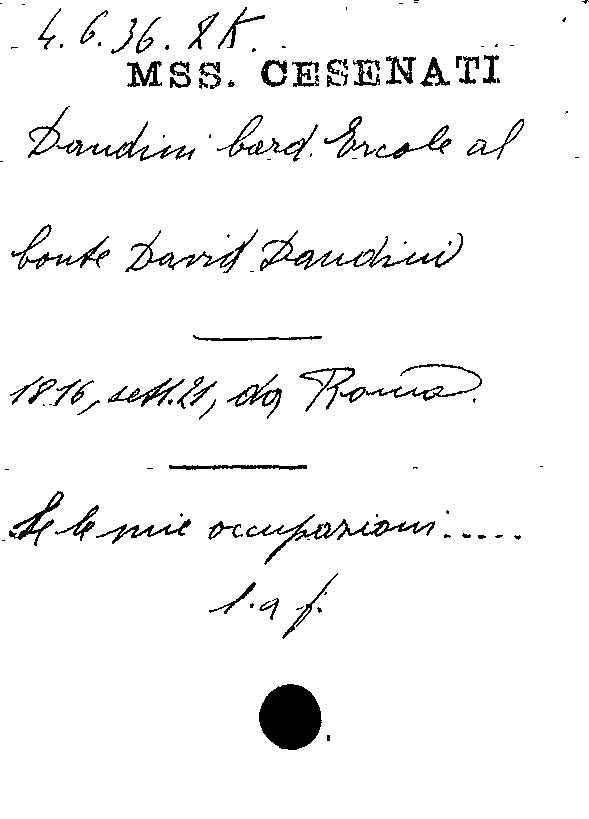 4.6.36. XK.
MSS. CESENATI
Dandini Card. Ercole al
Conte David Dandini
1816, sett. 21, da Roma.
Se le mie occupazioni.....
l. a f.